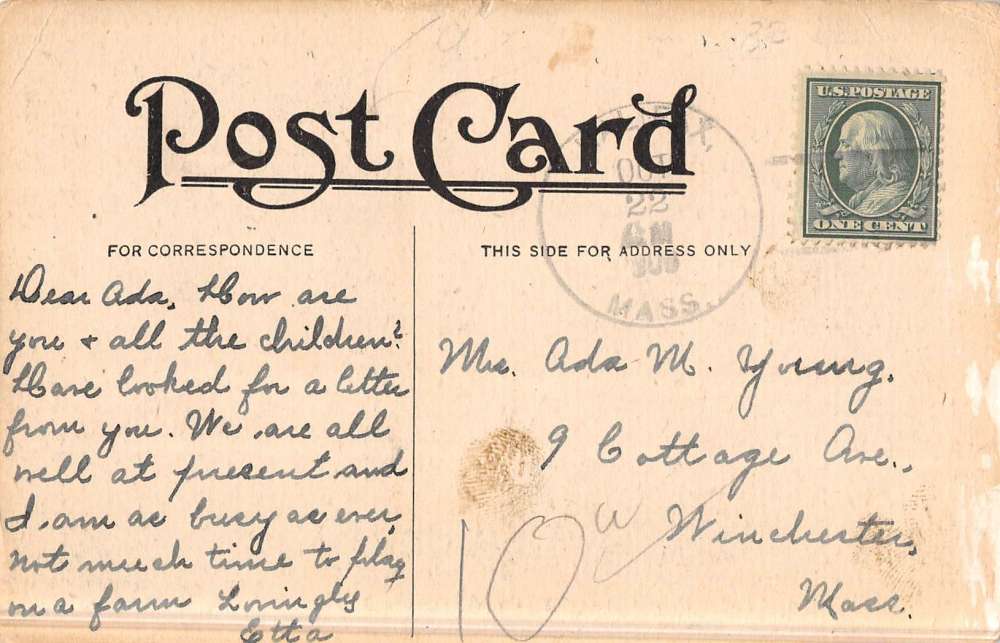 Post Card
U.S. POSTAGE
ONE CENT
OCT
22
MASS.
FOR CORRESPONDENCE
THIS SIDE FOR ADDRESS ONLY
Dear Ada, How are
you + all the children?
Have looked for a letter
from you. We are all
well at present and
I am as busy as ever,
not much time to play
on a farm Lovingly
Etta
Mrs. Ada M. Young,
9 Cottage Ave.,
Winchester,
Mass.